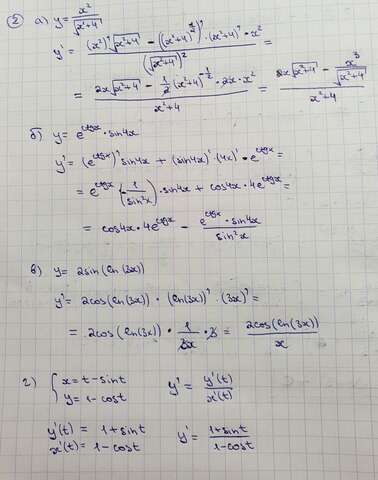 ② а) y = x²/√(x²+4)
y' = ((x²)'√(x²+4) − ((x²+4)^(1/2))' · (x²+4)' · x²)/(√(x²+4))² =
= (2x√(x²+4) − 1/2 (x²+4)^(−1/2) · 2x · x²)/(x²+4) = (2x√(x²+4) − x³/√(x²+4))/(x²+4)
б) y = e^(ctgx) · sin4x
y' = (e^(ctgx))' sin4x + (sin4x)' · (4x)' · e^(ctgx) =
= e^(ctgx) · (−1/sin²x) · sin4x + cos4x · 4e^(ctgx) =
= cos4x · 4e^(ctgx) − (e^(ctgx) · sin4x)/sin²x
в) y = 2sin(ln(3x))
y' = 2cos(ln(3x)) · (ln(3x))' · (3x)' =
= 2cos(ln(3x)) · 1/3x · 3 = 2cos(ln(3x))/x
г) { x = t − sint
y = 1 − cost
y' = y'(t)/x'(t)
y'(t) = 1 + sint
x'(t) = 1 − cost
y' = (1 + sint)/(1 − cost)